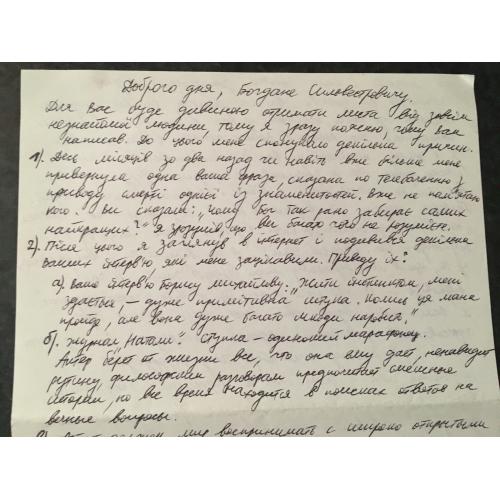 Доброго дня, Богдане Сильвестровичу.
Для Вас буде дивною отримати листа від зовсім
незнайомої людини, тому я зразу поясню, чому вам
написав. До цього мене спонукало декілька причин.
1). Десь місяців зо два назад чи навіть вже більше мене
привернула одна ваша фраза, сказана по телебаченню з
приводу смерті однієї із знаменитостей. Вже не пам'ятаю
кого. Ви сказали: „Чому Бог так рано забирає самих
найкращих?" Я зрозумів, що ви багато чого не розумієте.
2). Після цього я заглянув в інтернет і подивився декілька
ваших інтерв'ю, які мене зацікавили. Приведу їх:
а). ваше інтерв'ю "Жити інстинктом, мені
здається, – дуже примітивна штука. Колись ця мана
пройде, але вона дуже багато людей
б). журнал „Натали": Ступка – одинокий марафонец.
Актер берёт от жизни все, что она ему дает, ненавидит
рутину, философским разговорам предпочитает смешные
истории, но все время находится в поисках ответов на
вечные вопросы.
мир воспринимать с широко открытыми